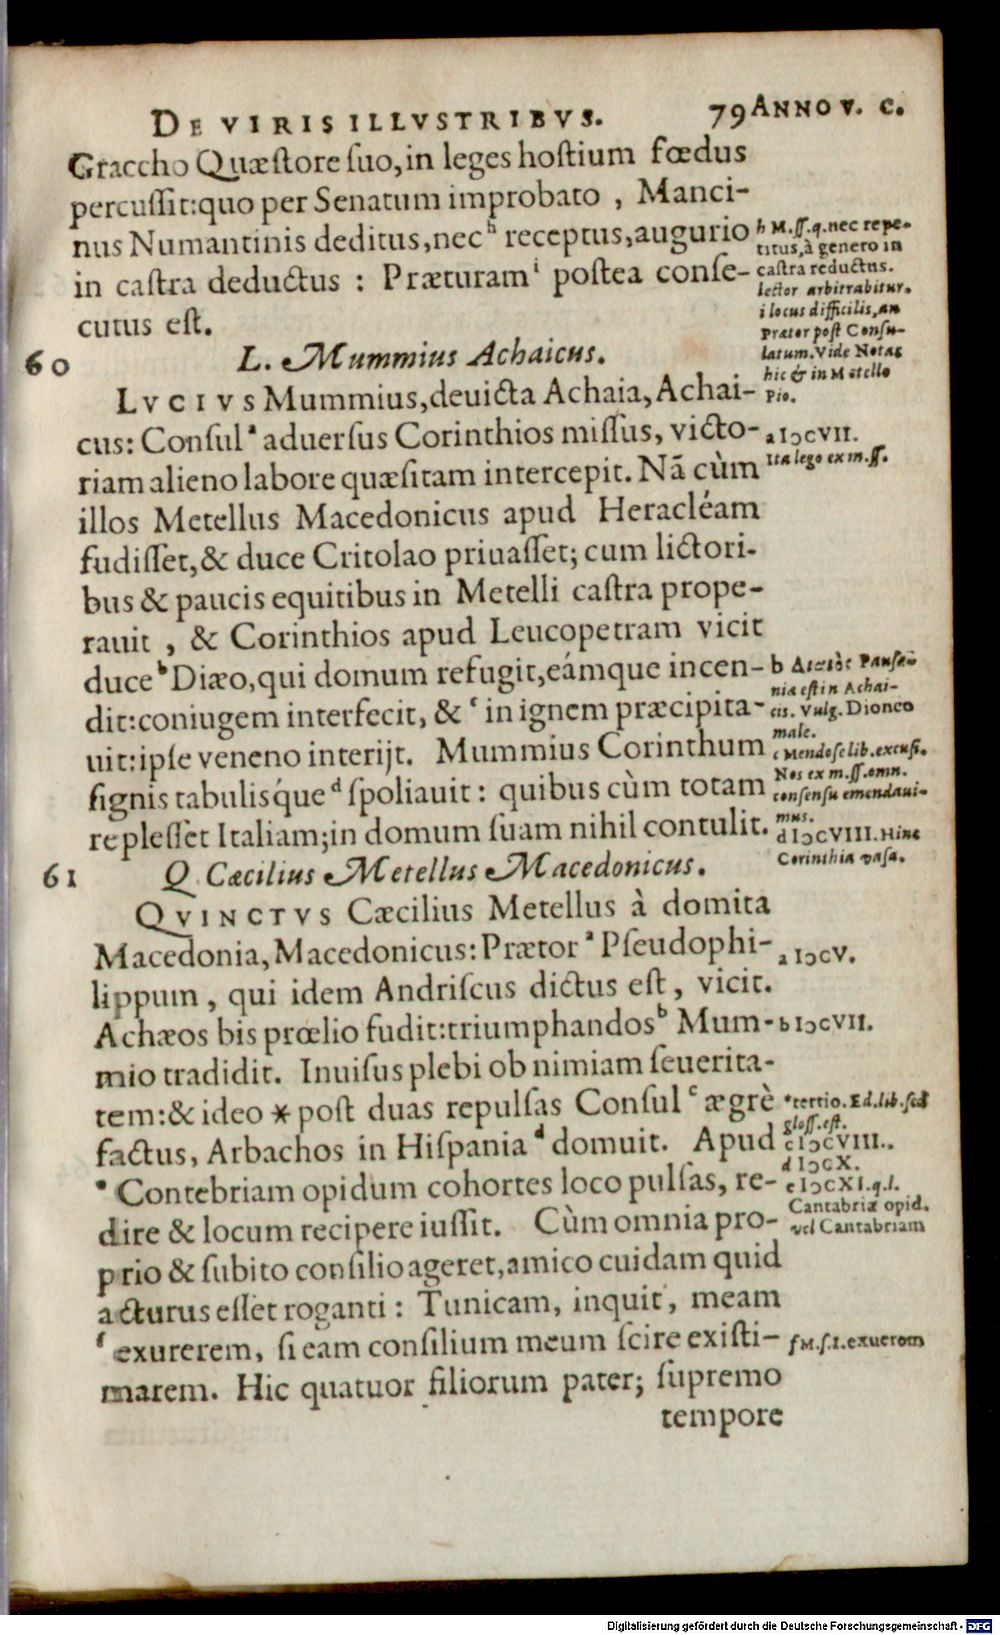 DE VIRIS ILLVSTRIBVS. 79 ANNO V. C.
Graccho Quæstore suo, in leges hostium fœdus
percussit: quo per Senatum improbato, Manci-
nus Numantinis deditus, nec h receptus, augurio
in castra deductus: Præturam i postea conse-
cutus est.
h M.ss.q. nec repe-
titus, à genero in
castra reductus.
lector arbitrabitur.
i locus difficilis, an
Prætor post Consu-
latum. Vide Notas
hic & in Metello
Pio.
60 L. Mummius Achaicus.
LVCIVS Mummius, deuicta Achaia, Achai-
cus: Consul a aduersus Corinthios missus, victo-
riam alieno labore quæsitam intercepit. Nã cùm
illos Metellus Macedonicus apud Heracléam
fudisset, & duce Critolao priuasset; cum lictori-
bus & paucis equitibus in Metelli castra prope-
rauit, & Corinthios apud Leucopetram vicit
duce b Diæo, qui domum refugit, eámque incen-
dit: coniugem interfecit, & c in ignem præcipita-
uit: ipse veneno interijt. Mummius Corinthum
signis tabulisque d spoliauit: quibus cùm totam
replesset Italiam; in domum suam nihil contulit.
a IƆCVII.
Ita lego ex m.ss.
b Διαῖος Pausa-
nia est in Achai-
cis. Vulg. Dionco
male.
c Mendose lib. excusi.
Nos ex m.ss. omn.
consensu emendaui-
mus.
d IƆCVIII. Hinc
Corinthia vasa.
61 Q. Cæcilius Metellus Macedonicus.
QVINCTVS Cæcilius Metellus à domita
Macedonia, Macedonicus: Prætor a Pseudophi-
lippum, qui idem Andriscus dictus est, vicit.
Achæos bis prœlio fudit: triumphandos b Mum-
mio tradidit. Inuisus plebi ob nimiam seuerita-
tem: & ideo * post duas repulsas Consul c ægrè
factus, Arbachos in Hispania d domuit. Apud
e Contebriam opidum cohortes loco pulsas, re-
dire & locum recipere iussit. Cùm omnia pro-
prio & subito consilio ageret, amico cuidam quid
acturus esset roganti: Tunicam, inquit, meam
f exurerem, si eam consilium meum scire existi-
marem. Hic quatuor filiorum pater; supremo
tempore
a IƆCV.
b IƆCVII.
* tertio. Ed. lib. sed
gloss. est.
c IƆCVIII.
d IƆCX.
e IƆCXI. q.l.
Cantabriæ opid.
vel Cantabriam
f M.s.1. exuerem
Digitalisierung gefördert durch die Deutsche Forschungsgemeinschaft - DFG